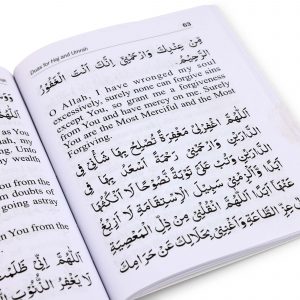 Duas for Hajj and Umrah
69
مِنْ عِنْدِكَ وَارْحَمْنِي إِنَّكَ أَنْتَ الْغَفُورُ
الرَّحِيمُ
O Allah, I have wronged my soul
excessively, surely none can forgive sins
except You, so grant me a forgiveness
from You and have mercy on me. Surely
You are the Most Merciful and the Most
Forgiving.
اَللّٰهُمَّ اغْفِرْلِي مَغْفِرَةً تُصْلِحُ بِهَا شَأْنِي فِي
الدَّارَيْنِ وَارْحَمْنِي رَحْمَةً أَسْعَدُ بِهَا فِي
الدَّارَيْنِ وَتُبْ عَلَيَّ تَوْبَةً نَصُوحًا لَا أَنْكُثُهَا
أَبَدًا وَأَلْزِمْنِي سَبِيلَ الْاِسْتِقَامَةِ لَا أَزِيغُ
عَنْهَا أَبَدًا اَللّٰهُمَّ انْقُلْنِي مِنْ ذُلِّ الْمَعْصِيَةِ
إِلَى عِزِّ الطَّاعَةِ وَأَغْنِنِي بِحَلَالِكَ عَنْ حَرَامِكَ
as You
my wealth
You from the
from doubts of
going astray
in You from the
اَللّٰهُمَّ إِنِّي ظَلَمْتُ
لَا يَغْفِرُ الذُّنُوبَ